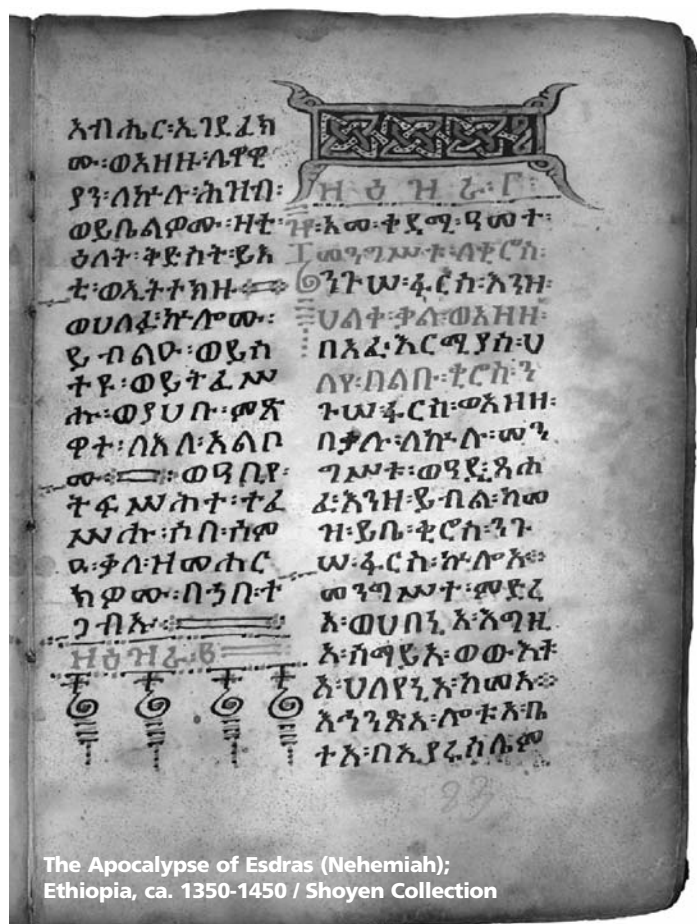 እብሔር፡ኢገደፈክ
ሙ፡ወአዘዙ፡ሌዋዊ
ያን፡ለኵሉ፡ሕዝብ፡
ወይቤልዎሙ፡ዛቲ፡
ዕለት፡ቅድስት፡ይእ
ቲ፡ወኢትተክዙ
ወሀለፉ፡ኵሎሙ፡
ይብልዑ፡ወይስ
ተዩ፡ወይትፈሥ
ሑ፡ወያሀቡ፡ምጽ
ዋተ፡ለእለ፡አልቦ
ሙ፡ወዓቢየ፡
ትፍሥሕተ፡ተፈ
ሥሑ፡ሶበ፡ሰም
ዑ፡ቃለ፡ዝመሐር
ክዎሙ፡በኀበ፡ተ
ጋብኡ
ዘዕዝራ፡
ዘ ዕ ዝ ራ፡፫፡
አመ፡ቀደሚ፡ዓመት፡
መንግሥቱ፡ለቂሮስ፡
ንጉሠ፡ፋርስ፡እንዘ፡
ሀልቀ፡ቃል፡ወአዘዘ፡
በአፈ፡ኤርሚያስ፡ሀ
ለየ፡በልቡ፡ቂሮስ፡ን
ጉሠ፡ፋርስ፡ወአዘዘ፡
በቃሉ፡ለኵሉ፡መን
ግሥቱ፡ወዓዲ፡ጸሐ
ፈ፡እንዘ፡ይብል፡ከመ
ዝ፡ይቤ፡ቂሮስ፡ንጉ
ሠ፡ፋርስ፡ኵሎአ፨
መንግሥተ፡ምድረ
አ፡ወሀበኒአ፡እግዚ
አ፡ሰማይአ፡ወውእቱ
አ፡ሀለየኒአ፡ከመአ፨
አሓንጽአ፡ሎቱአ፡ቤ
ተአ፡በኢየሩስሌም
83
The Apocalypse of Esdras (Nehemiah);
Ethiopia, ca. 1350-1450 / Shoyen Collection